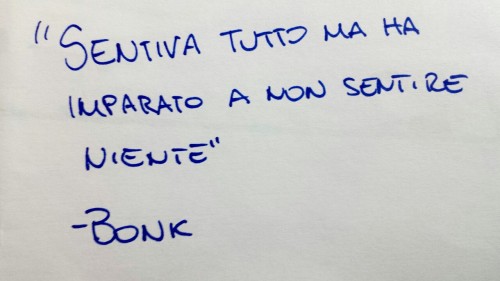 "SENTIVA TUTTO MA HA
IMPARATO A NON SENTIRE
NIENTE"
-BONK